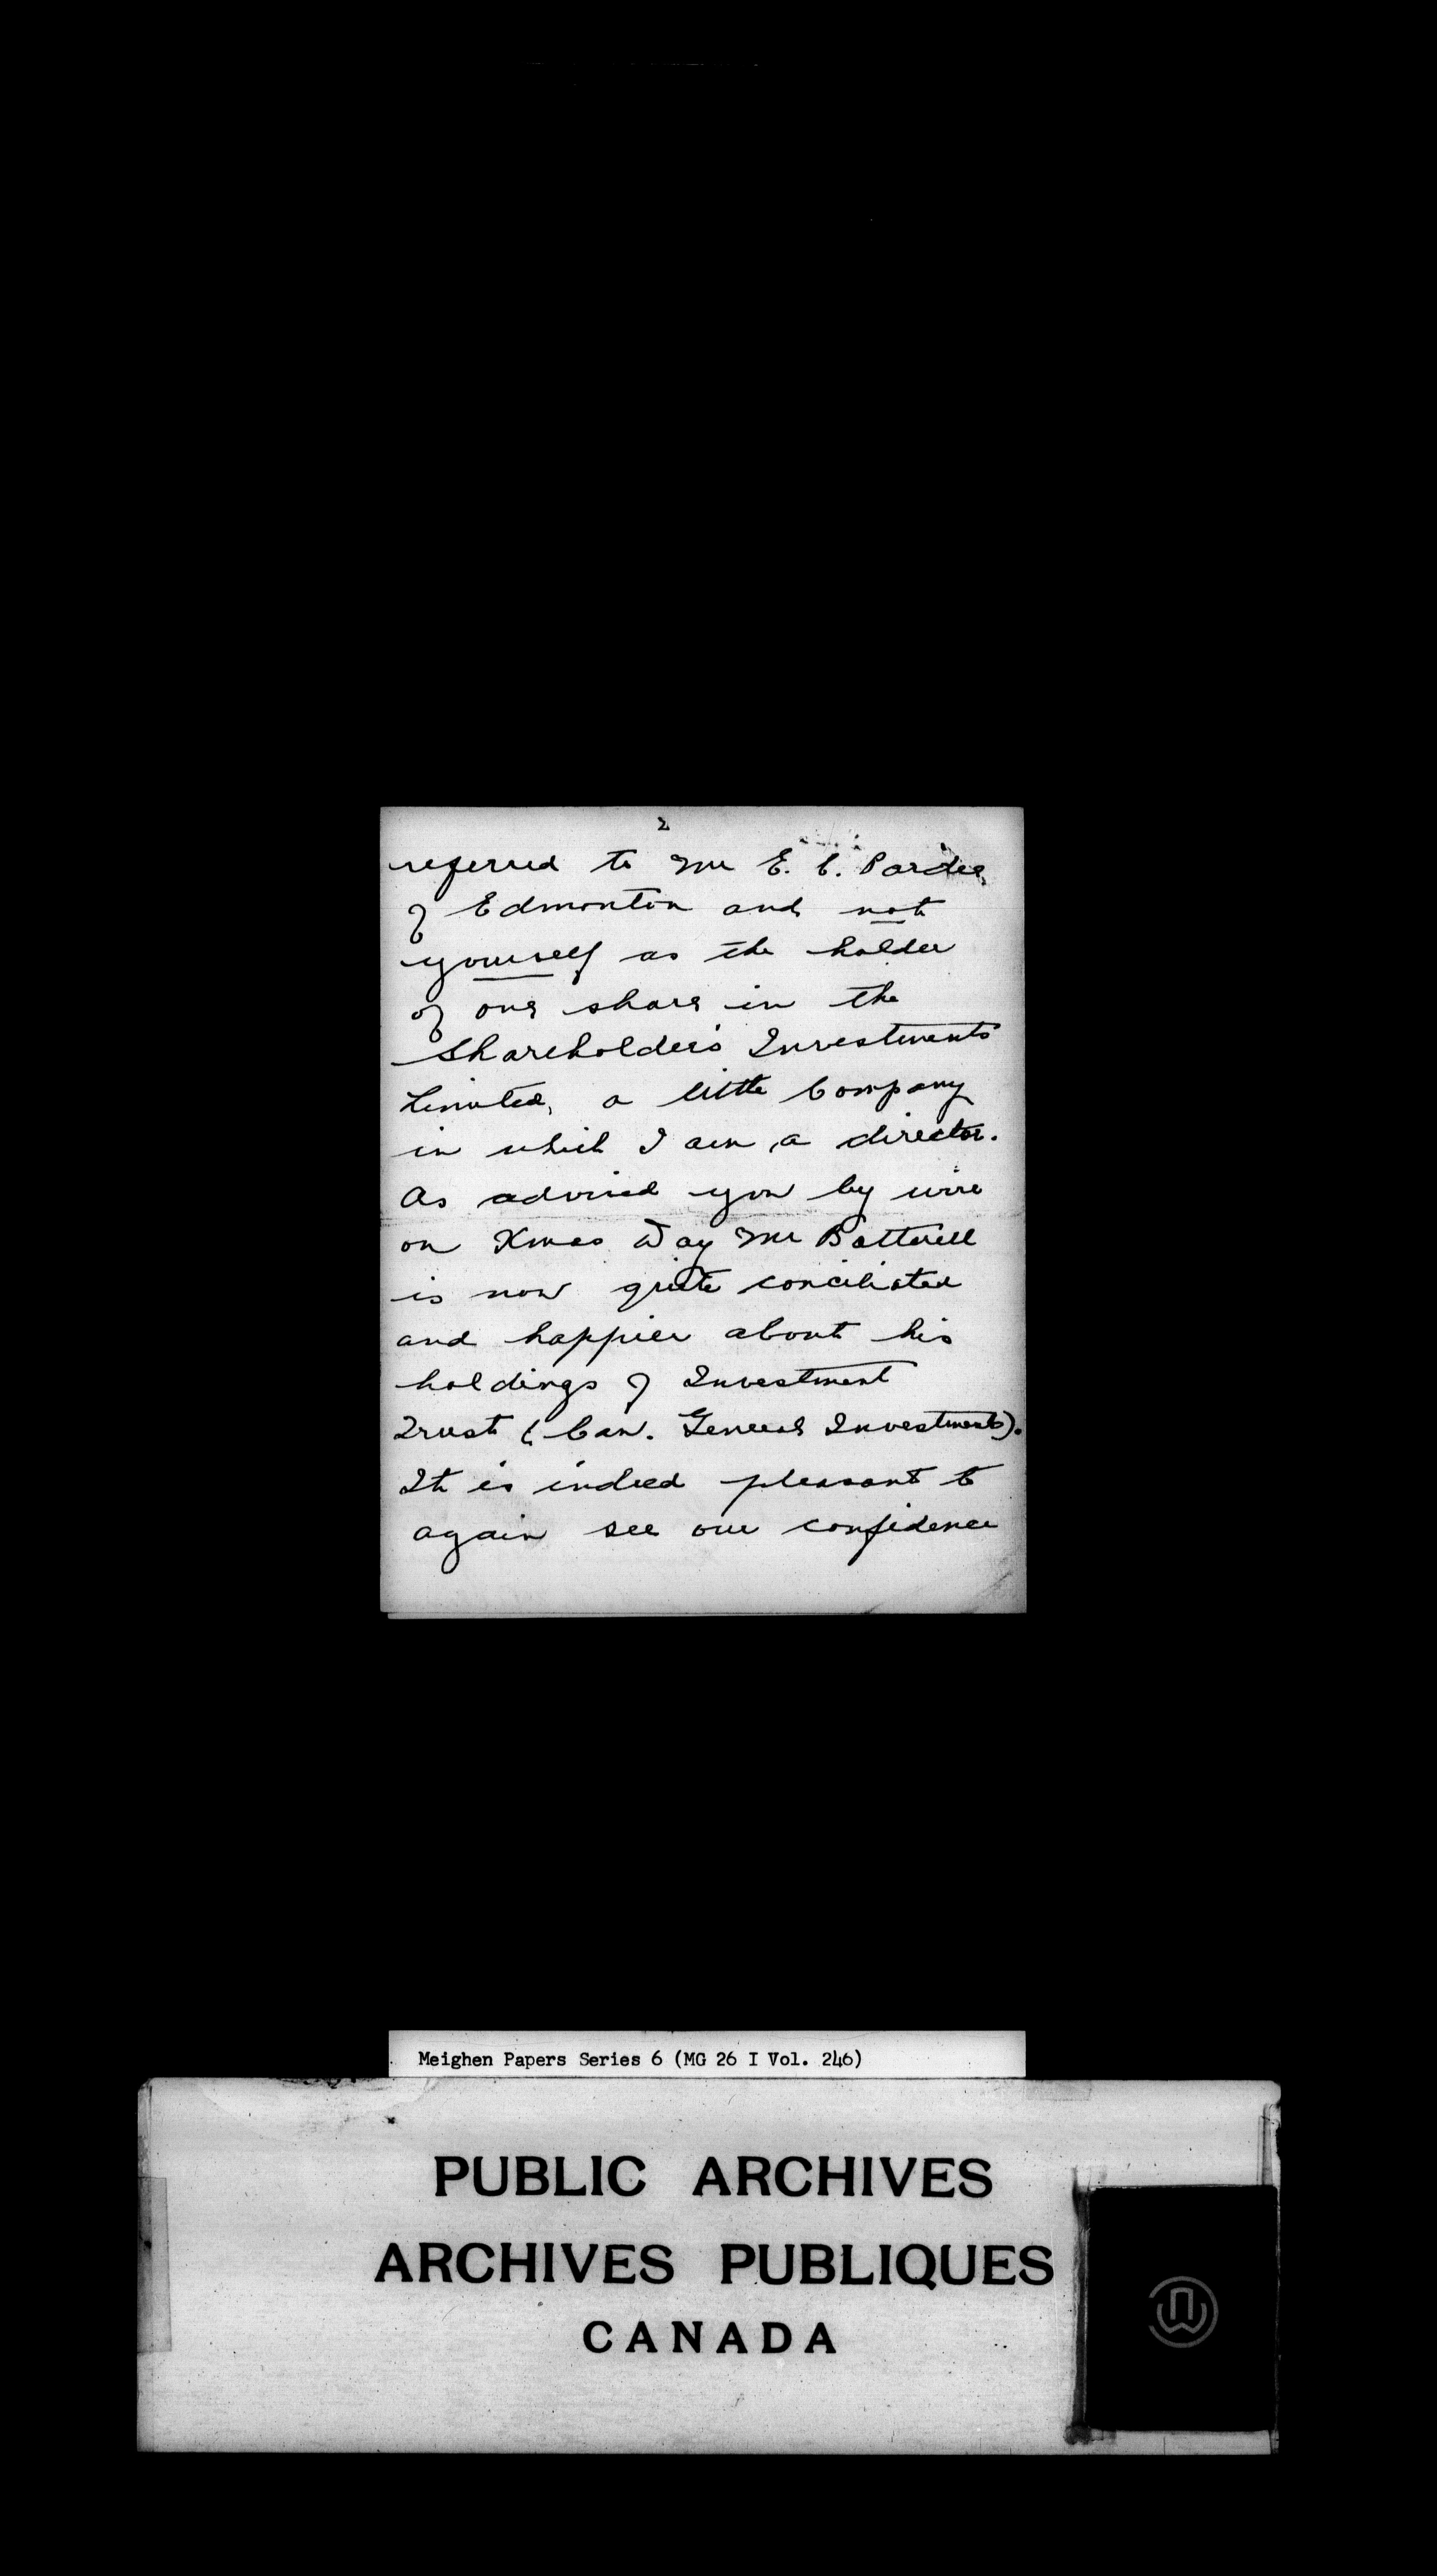 2
referred to Mr E. C. Pardee
of Edmonton and not
yourself as the holder
of one share in the
Shareholder's Investments
Limited, a little Company
in which I am a director.
As advised you by wire
on Xmas Day Mr Botterell
is now quite conciliated
and happier about his
holdings of Investment
Trust (Can. General Investments).
It is indeed pleasant to
again see our confidence
Meighen Papers Series 6 (MG 26 I Vol. 246)
PUBLIC ARCHIVES
ARCHIVES PUBLIQUES
CANADA